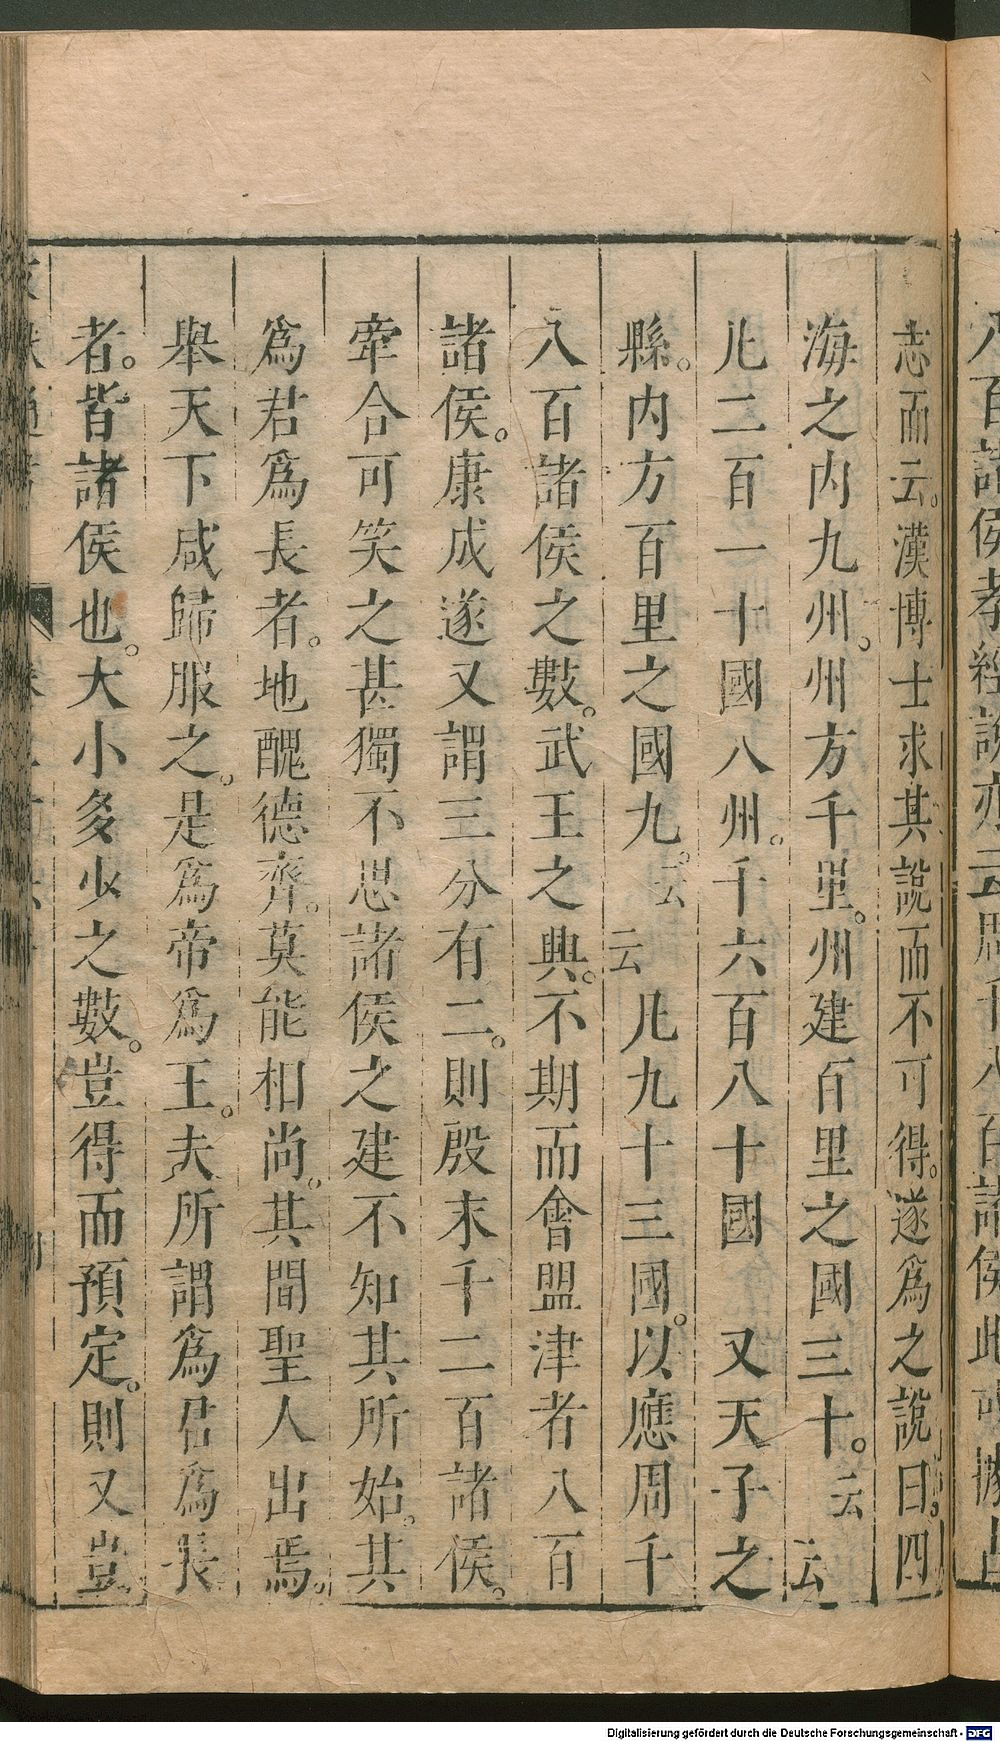 志而云。漢博士求其說而不可得。遂爲之說曰。四
海之内九州。州方千里。州建百里之國三十。云云
凡二百一十國八州。千六百八十國 又天子之
縣。内方百里之國九。云云凡九十三國。以應周千
八百諸侯之數。武王之興。不期而會盟津者八百
諸侯。康成遂又謂三分有二。則殷末千二百諸侯。
牽合可笑之甚獨不思諸侯之建不知其所始。其
爲君爲長者。地醜德齊。莫能相尚。其間聖人出焉。
舉天下咸歸服之。是爲帝爲王。夫所謂爲君爲長
者。皆諸侯也。大小多少之數。豈得而預定。則又豈
Digitalisierung gefördert durch die Deutsche Forschungsgemeinschaft - DFG